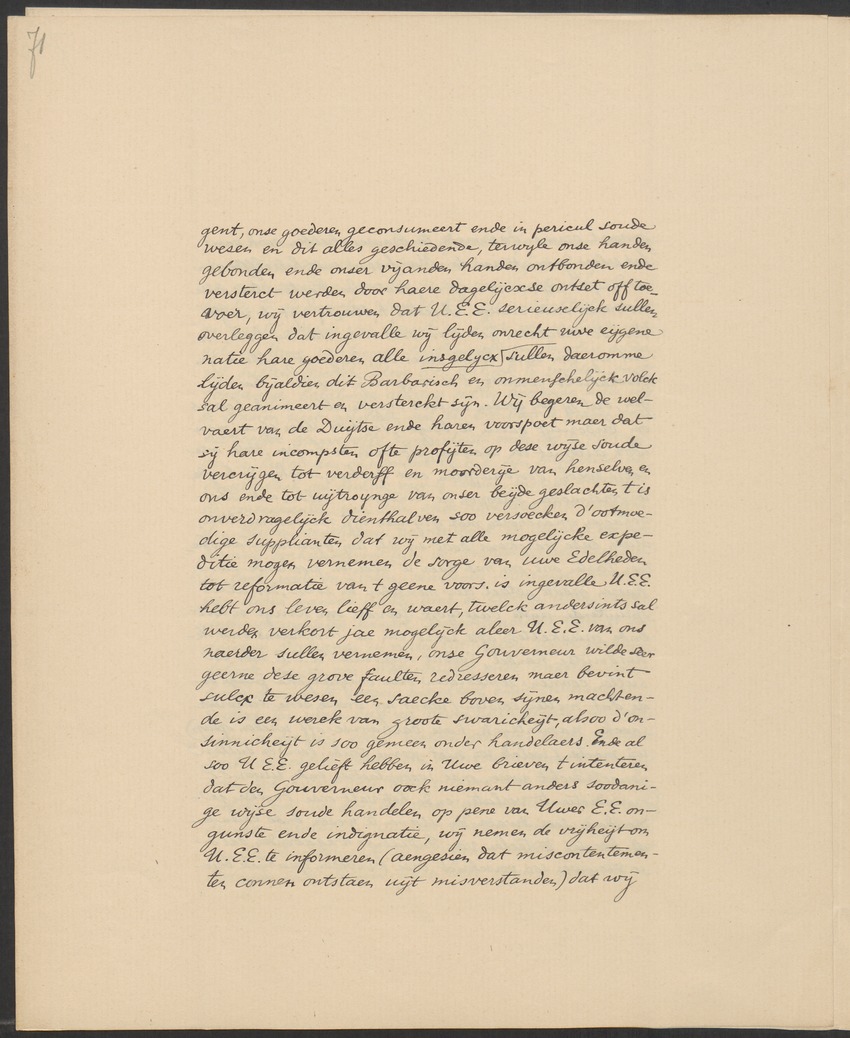 71
gent, onse goederen geconsumeert ende in pericul soude
wesen en dit alles geschiedende, terwyle onse handen
gebonden ende onser vijanden handen ontbonden ende
versterct werden door haere dagelijcxse ontset off toe-
voer, wij vertrouwen dat U.E.E. serieuselijck sullen
overleggen dat ingevalle wij lijden onrecht uwe eijgene
natie hare goederen alle insgelycx sullen daeromme
lijden bijaldien dit Barbarisch en onmenschelijck volck
sal geanimeert en versterckt sijn. Wij begeren de wel-
vaert van de Duijtse ende haren voorspoet maer dat
sij hare incompsten ofte profijten op dese wijse soude
vercrijgen tot verderff en moorderije van henselven en
ons ende tot uijtroynge van onser beijde geslachten t is
onverdragelijck dienthalven soo versoecken d'ootmoe-
dige supplianten dat wij met alle mogelijcke expe-
ditie mogen vernemen de sorge van uwe Edelheden
tot reformatie van t geene voors. is ingevalle U.E.E.
hebt ons leven lieff en waert, twelck andersints sal
werden verkort jae mogelijck aleer U.E.E. van ons
naerder sullen vernemen, onse Gouverneur wilde seer
geerne dese grove faulten redresseren maer bevint
sulcx te wesen een saecke boven sijnen macht en-
de is een werck van groote swaricheijt, alsoo d'on-
sinnicheijt is soo gemeen onder handelaers. Ende al
soo U.E.E. gelieft hebben in Uwe brieven t intenteren
dat den Gouverneur oock niemant anders soodani-
ge wijse soude handelen op pene van Uwer E.E. on-
gunste ende indignatie, wij nemen de vrijheijt om
U.E.E. te informeren (aengesien dat miscontentemen-
ten connen ontstaen uijt misverstanden) dat wij